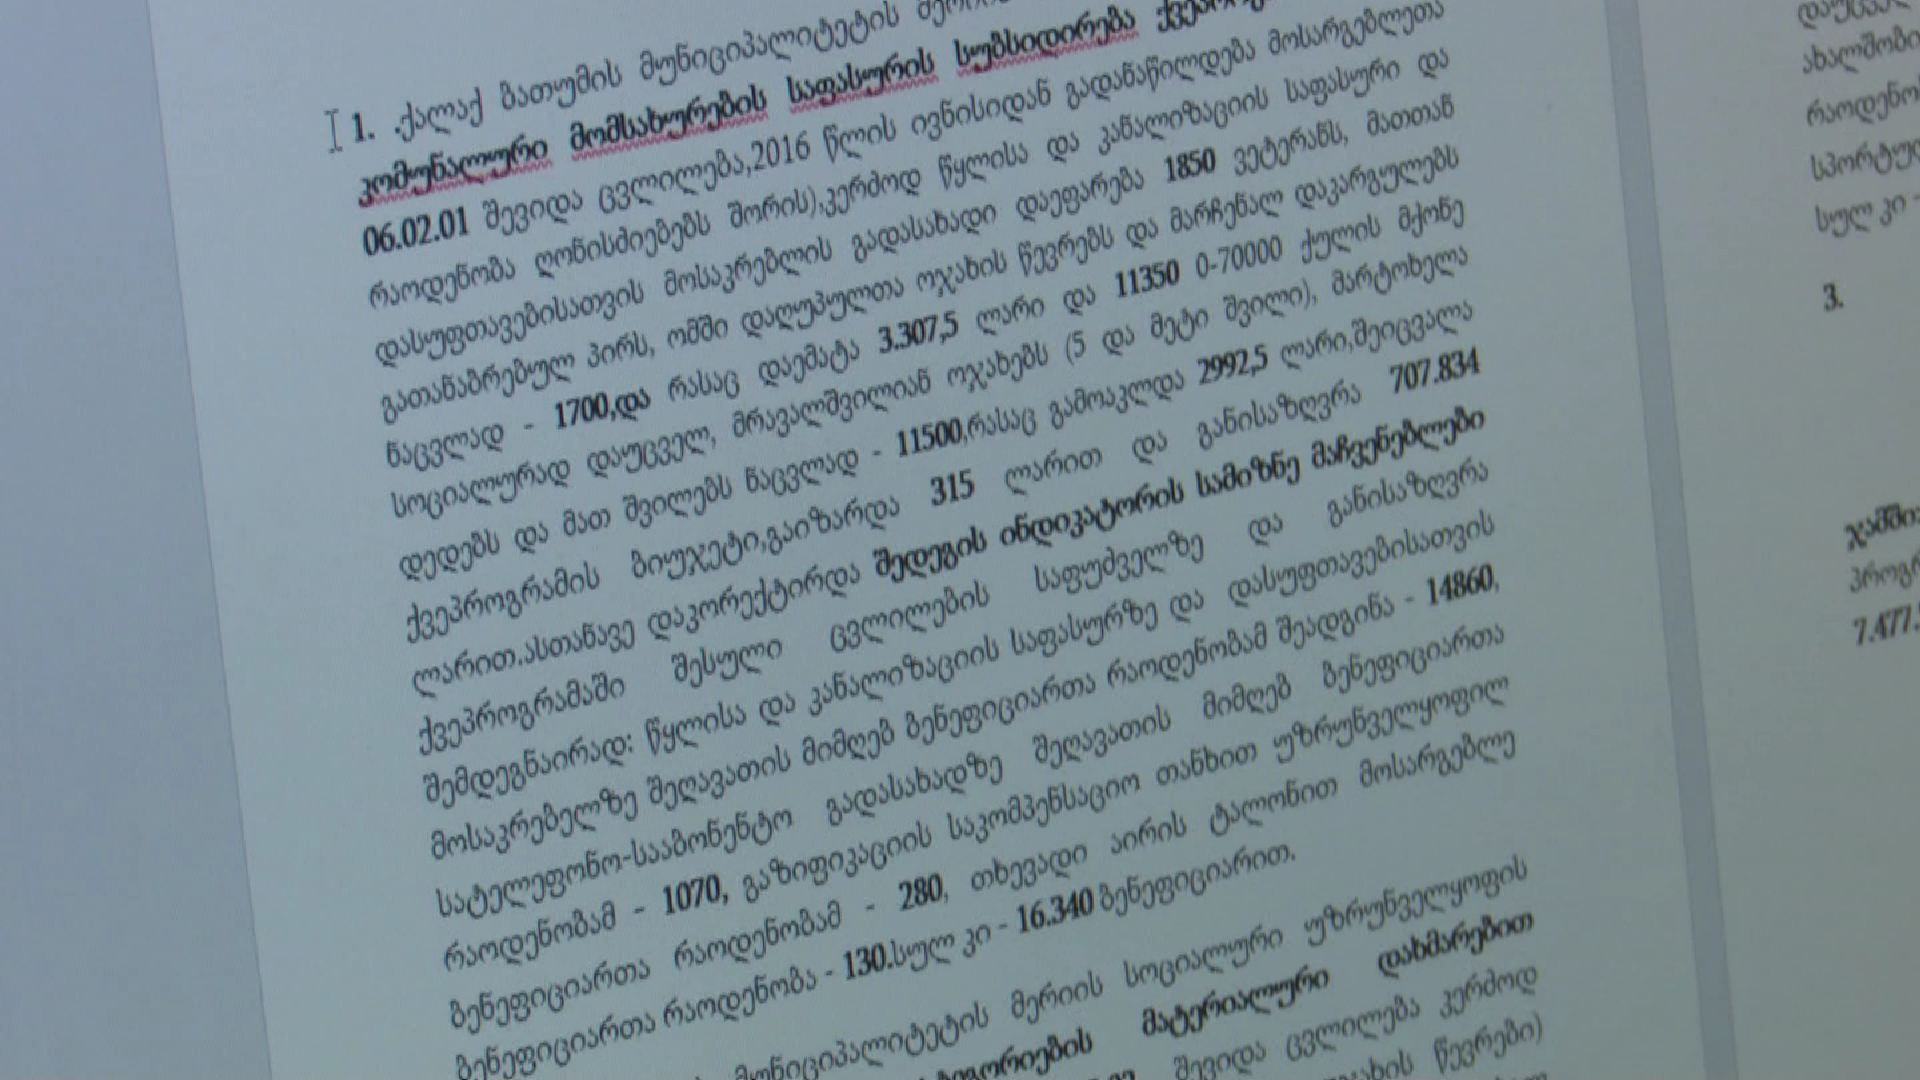 1. .ქალაქ ბათუმის მუნიციპალიტეტის
კომუნალური მომსახურების საფასურის სუბსიდირება
06.02.01 შევიდა ცვლილება,2016 წლის ივნისიდან გადანაწილდება მოსარგებლეთა
რაოდენობა ღონისძიებებს შორის),კერძოდ წყლისა და კანალიზაციის საფასური და
დასუფთავებისათვის მოსაკრებლის გადასახადი დაეფარება 1850 ვეტერანს, მათთან
გათანაბრებულ პირს, ომში დაღუპულთა ოჯახის წევრებს და მარჩენალ დაკარგულებს
ნაცვლად - 1700,და რასაც დაემატა 3.307,5 ლარი და 11350 0-70000 ქულის მქონე
სოციალურად დაუცველ, მრავალშვილიან ოჯახებს (5 და მეტი შვილი), მარტოხელა
დედებს და მათ შვილებს ნაცვლად - 11500,რასაც გამოაკლდა 2992,5 ლარი,შეიცვალა
ქვეპროგრამის ბიუჯეტი,გაიზარდა 315 ლარით და განისაზღვრა 707.834
ლარით.ასთანავე დაკორექტირდა შედეგის ინდიკატორის სამიზნე მაჩვენებლები
ქვეპროგრამაში შესული ცვლილების საფუძველზე და განისაზღვრა
შემდეგნაირად: წყლისა და კანალიზაციის საფასურზე და დასუფთავებისათვის
მოსაკრებელზე შეღავათის მიმღებ ბენეფიციართა რაოდენობამ შეადგინა - 14860,
სატელეფონო-სააბონენტო გადასახადზე შეღავათის მიმღებ ბენეფიციართა
რაოდენობამ - 1070, გაზიფიკაციის საკომპენსაციო თანხით უზრუნველყოფილ
ბენეფიციართა რაოდენობამ - 280, თხევადი აირის ტალონით მოსარგებლე
ბენეფიციართა რაოდენობა - 130.სულ კი - 16.340 ბენეფიციარით.
მუნიციპალიტეტის მერიის სოციალური უზრუნველყოფის
მატერიალური დახმარებით
შევიდა ცვლილება კერძოდ
წევრები)
ახალშობი
რაოდენო
სპორტულ
სულ კი -
3.
პროგრ
7.477.